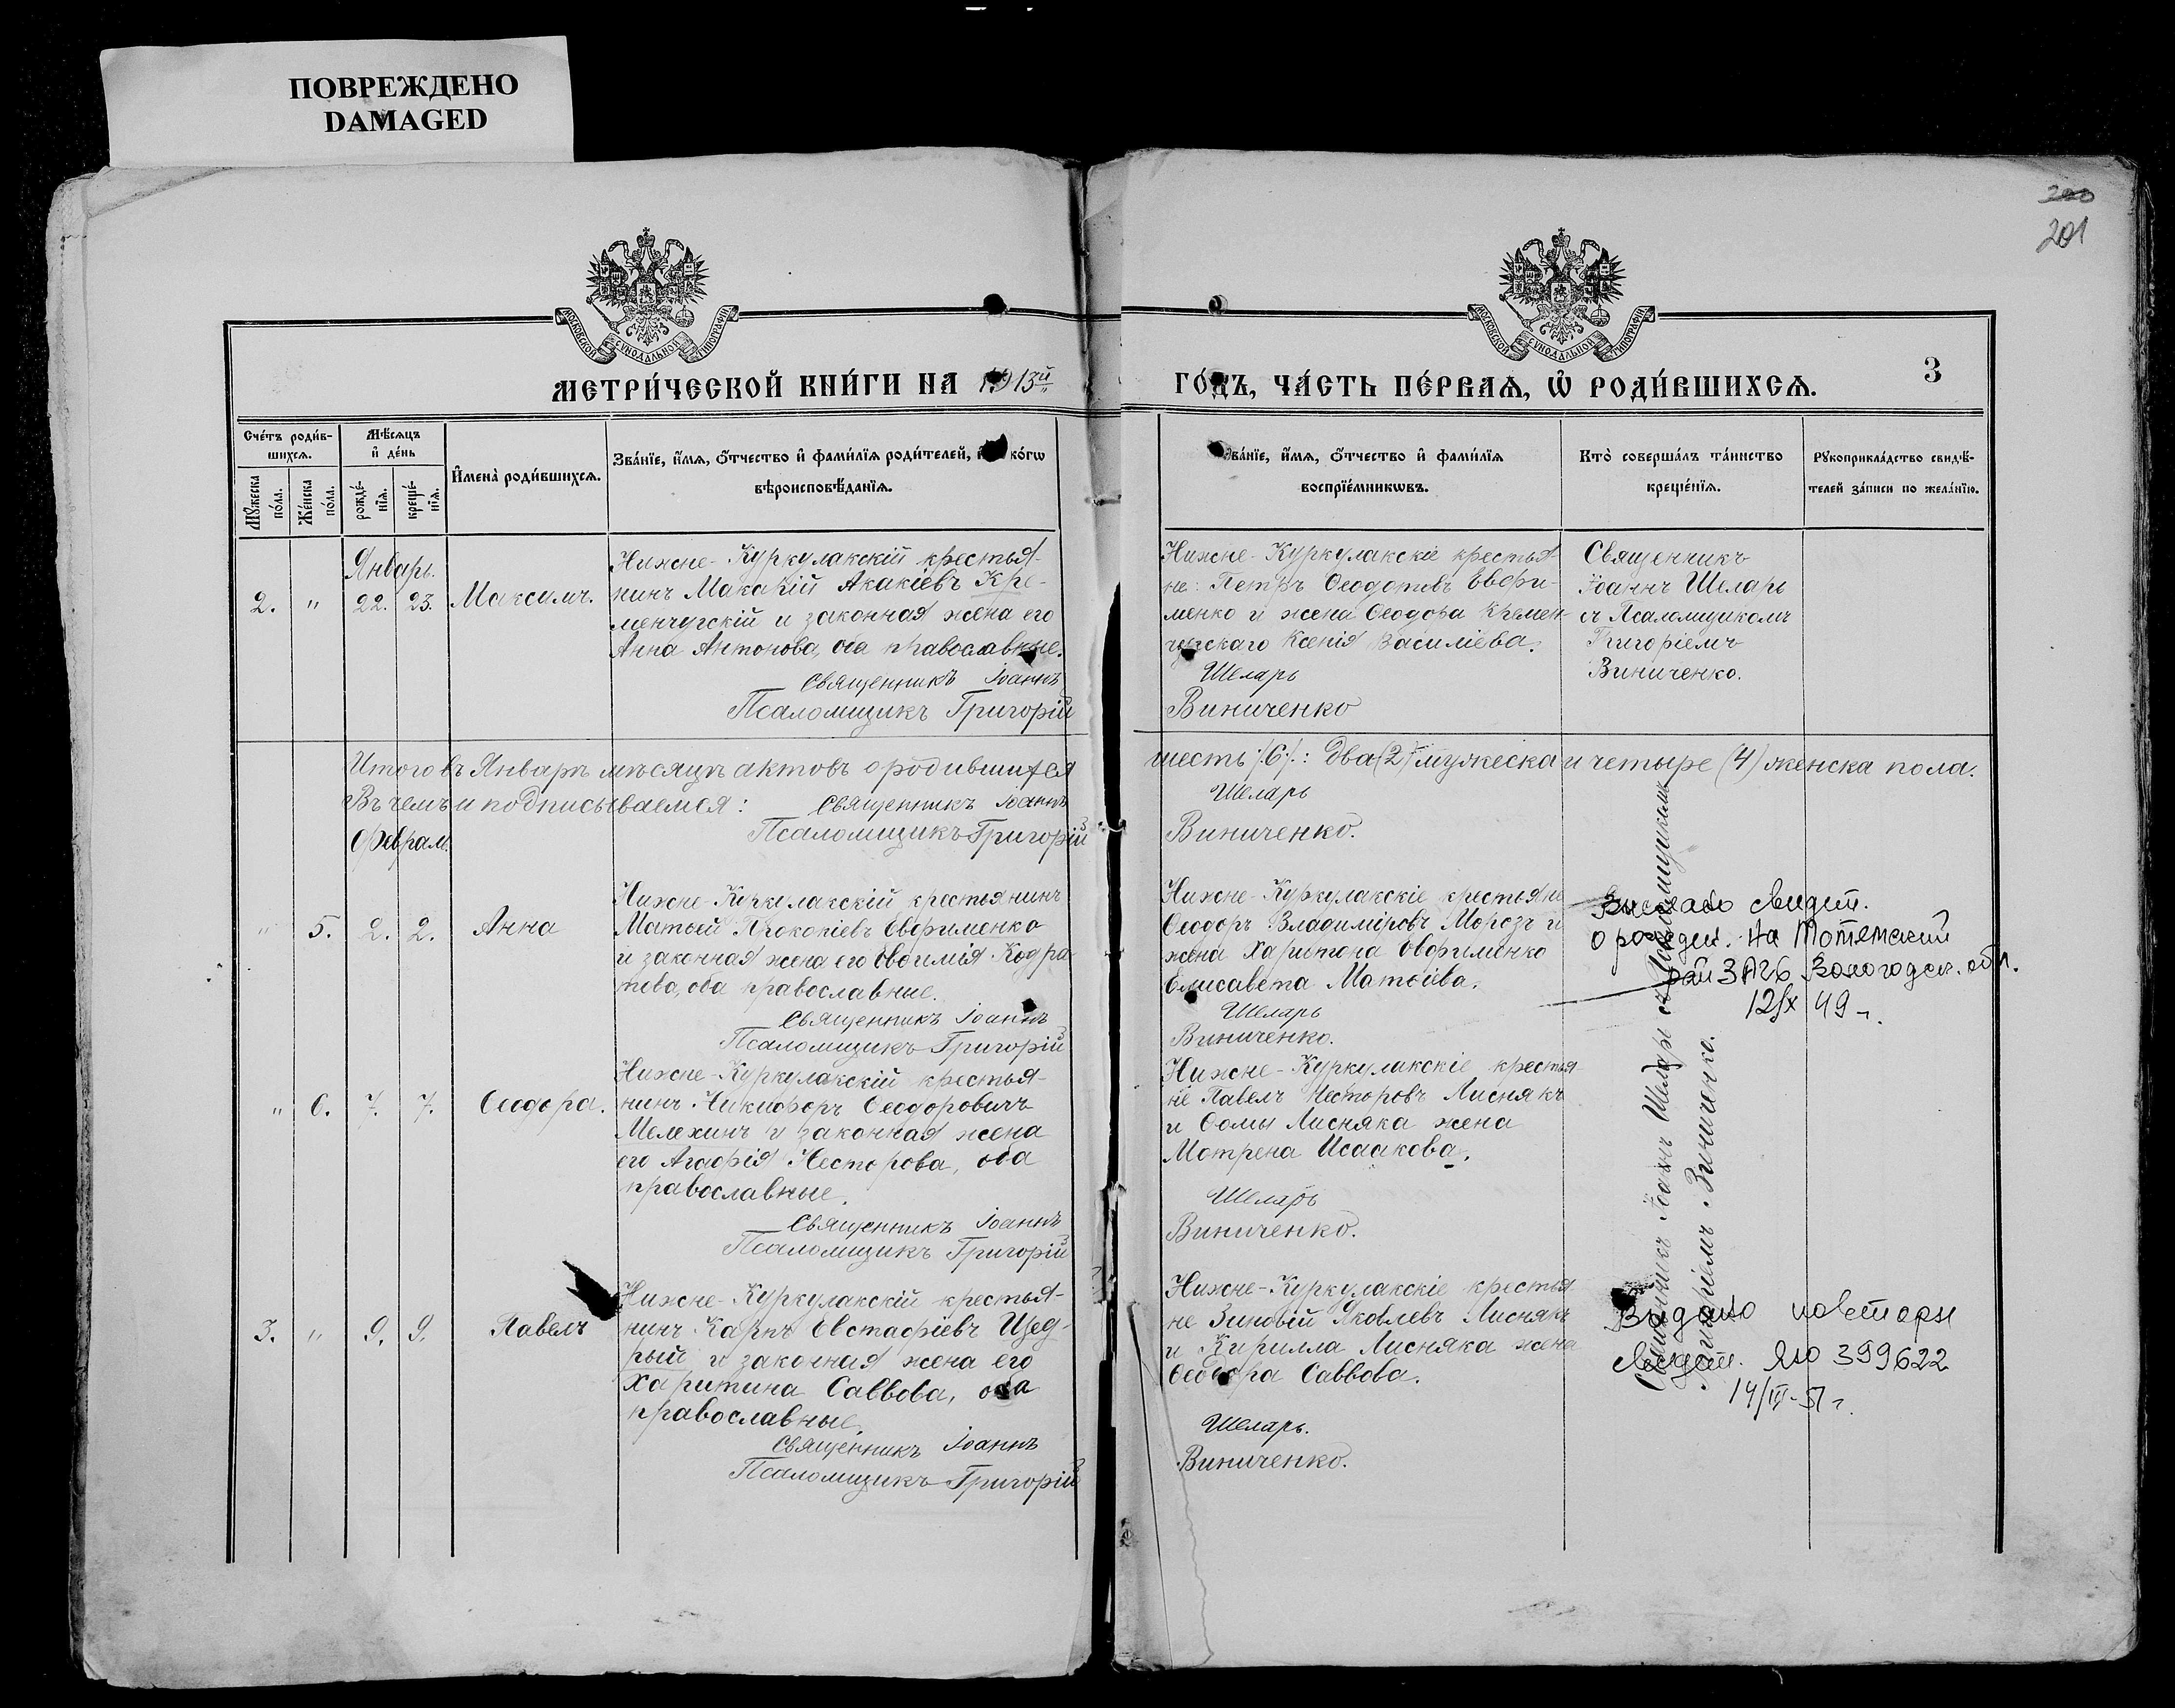 ПОВРЕЖДЕНО
DAMAGED
200
201
МОСКОВСКОЙ СѴНОДАЛЬНОЙ ТИПОГРАФІИ
МОСКОВСКОЙ СѴНОДАЛЬНОЙ ТИПОГРАФІИ
МЕТРИ́ЧЕСКОЙ КНИ́ГИ НА 1913й
ГО́ДЪ, ЧА́СТЬ ПЕ́РВАѦ, Ѽ РОДИ́ВШИХСѦ.
3
Сче́тъ роди́в-
шихсѧ.
Мѣ́сѧцъ
и҆ де́нь
Мꙋ́жеска
по́ла.
Же́нска
по́ла.
рожде́-
нїѧ.
креще́-
нїѧ.
И҆мена̀ роди́вшихсѧ.
Зва́нїе, и҆́мѧ, ѻ҆́тчество и҆ фами́лїѧ роди́телей, и҆ ко́гѡ
вѣроисповѣ́данїѧ.
Зва́нїе, и҆́мѧ, ѻ҆́тчество и҆ фами́лїѧ
воспрїе́мникѡвъ.
Кто̀ соверша́лъ та́инство
креще́нїѧ.
Рꙋкоприкла́дство свидѣ́-
телей за́писи по жела́нїю.
Январь.
2. " 22. 23. Максимъ.
Нижне-Куркулакскій крестья-
нинъ Макарій Акакіевъ Кре-
менчугскій и законная жена его
Анна Антонова, оба православные.
Священникъ Іоаннъ
Псаломщикъ Григорій
Нижне-Куркулакскіе крестья-
не: Петръ Ѳеодотовъ Евфи-
менко и жена Ѳеодора Кремен-
чугскаго Ксенія Василіева.
Шеларь
Виниченко
Священникъ
Іоаннъ Шеларь
съ Псаломщикомъ
Григоріемъ
Виниченко.
Итого въ Январѣ мѣсяцѣ актовъ о родившихся
шесть /6/: Два (2) мужеска и четыре (4) женска пола.
Въ чемъ и подписываемся: Священникъ Іоаннъ
Шеларь
Псаломщикъ Григорій
Виниченко.
Февраль.
" 5. 2. 2. Анна
Нижне-Куркулакскій крестьянинъ
Матѳей Прокопіевъ Евфименко
и законная жена его Евѳимія Кодра-
това, оба православные.
Священникъ Іоаннъ
Псаломщикъ Григорій
Нижне-Куркулакскіе крестьяне
Ѳеодоръ Владиміровъ Морозъ и
жена Харитона Евфименко
Елисавета Матѳіева.
Шеларь
Виниченко.
свидет.
о рожден. на Тотемский
рай ЗАГС Вологодск. обл.
12/X 49 г.
" 6. 7. 7. Ѳеодора.
Нижне-Куркулакскій крестья-
нинъ Никифоръ Ѳеодоровичъ
Мелехинъ и законная жена
его Агафія Несторова, оба
православные.
Священникъ Іоаннъ
Псаломщикъ Григорій
Нижне-Куркулакскіе крестья-
не Павелъ Несторовъ Лиснякъ
и Ѳомы Лисняка жена
Мотрена Исаакова.
Шеларь
Виниченко.
Священникъ Іоаннъ Шеларь съ Псаломщикомъ
Григоріемъ Виниченко.
3. " 9. 9. Павелъ
Нижне-Куркулакскій крестья-
нинъ Карпъ Евстафіевъ Щед-
рый и законная жена его
Харитина Саввова, оба
православные.
Священникъ Іоаннъ
Псаломщикъ Григорій
Нижне-Куркулакскіе крестья-
не Зиновій Яковлевъ Лиснякъ
и Кирилла Лисняка жена
Ѳеодора Саввова.
Шеларь.
Виниченко.
Выдано повторн
свидет. ЯЮ 399622
14/IV-51 г.